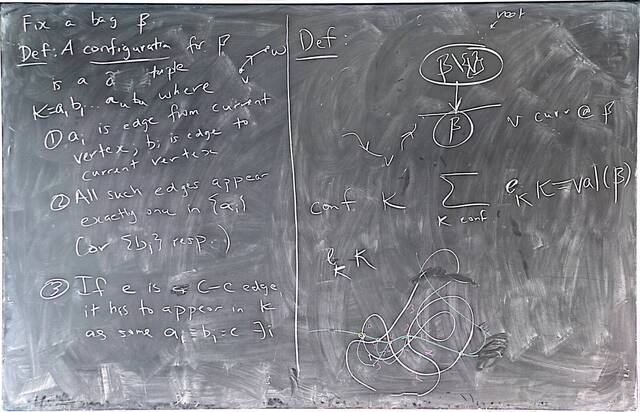 Fix a bag β.
Def: A configuration for β
is a tuple
K=a₁b₁... aₙbₙ where
① aᵢ is edge from current
vertex, bᵢ is edge to
current vertex
② All such edges appear
exactly one in {aᵢ}
(or {bᵢ} resp.)
③ If e is a C-C edge,
it has to appear in K
as some aᵢ=bᵢ=c ∃i
Def:
root
β\{v}
β
v curr @ β
v
conf K Σ e_K K = val(β)
K conf
e_K K